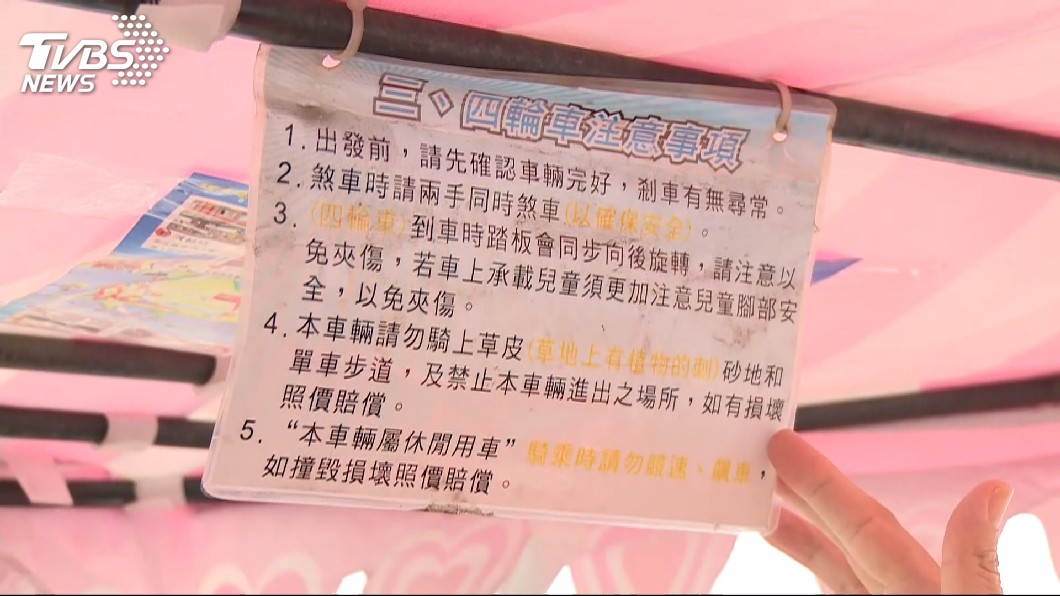 TVBS
NEWS
三、四輪車注意事項
1. 出發前，請先確認車輛完好，剎車有無尋常。
2. 煞車時請兩手同時煞車(以確保安全)。
3. (四輪車)到車時踏板會同步向後旋轉，請注意以
免夾傷，若車上承載兒童須更加注意兒童腳部安
全，以免夾傷。
4. 本車輛請勿騎上草皮(草地上有植物的刺)砂地和
單車步道，及禁止本車輛進出之場所，如有損壞
照價賠償。
5. “本車輛屬休閒用車”騎乘時請勿競速、飆車，
如撞毀損壞照價賠償。